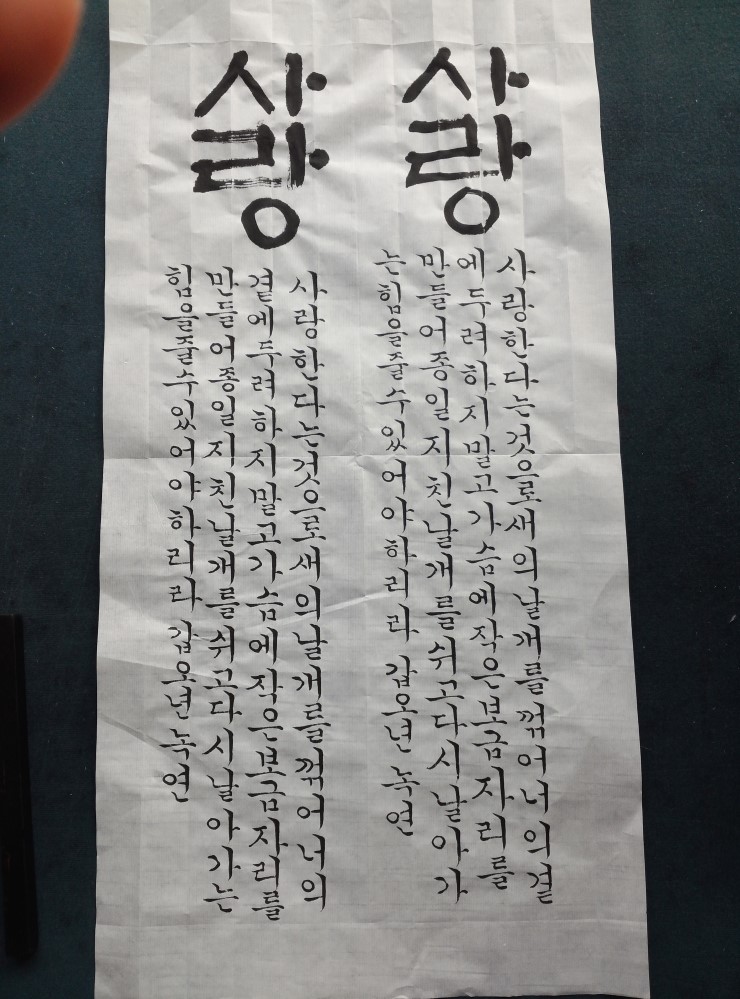 사랑
사랑한다는것으로새의날개를꺾어너의곁
에두려하지말고가슴에작은보금자리를
만들어종일지친날개를쉬고다시날아가
는힘을줄수있어야하리라 갑오년녹연
사랑
사랑한다는것으로새의날개를꺾어너의
곁에두려하지말고가슴에작은보금자리를
만들어종일지친날개를쉬고다시날아가는
힘을줄수있어야하리라 갑오년녹연